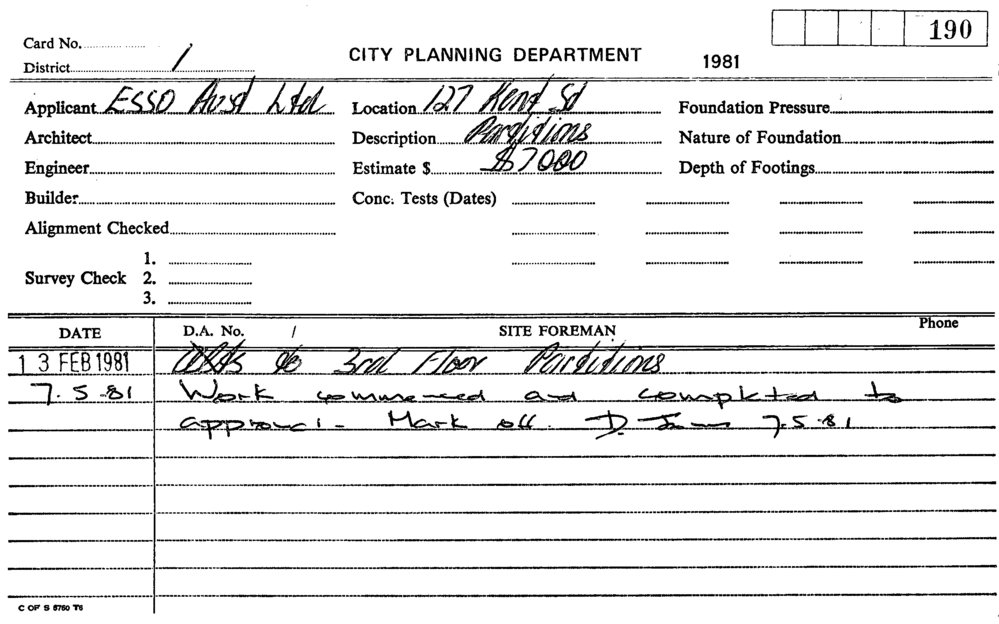 190
Card No.
CITY PLANNING DEPARTMENT 1981
District 1
Applicant ESSO Aust Ltd Location 127 Kent St Foundation Pressure
Architect Description Partitions Nature of Foundation
Engineer Estimate $ $7000 Depth of Footings
Builder Conc. Tests (Dates)
Alignment Checked
1.
Survey Check 2.
3.
DATE D.A. No. / SITE FOREMAN Phone
13 FEB 1981 to 3rd Floor Partitions
7.5.81 Work commenced and completed to
approval - Mark off. D. 7.5.81
C OF S 5750 T6